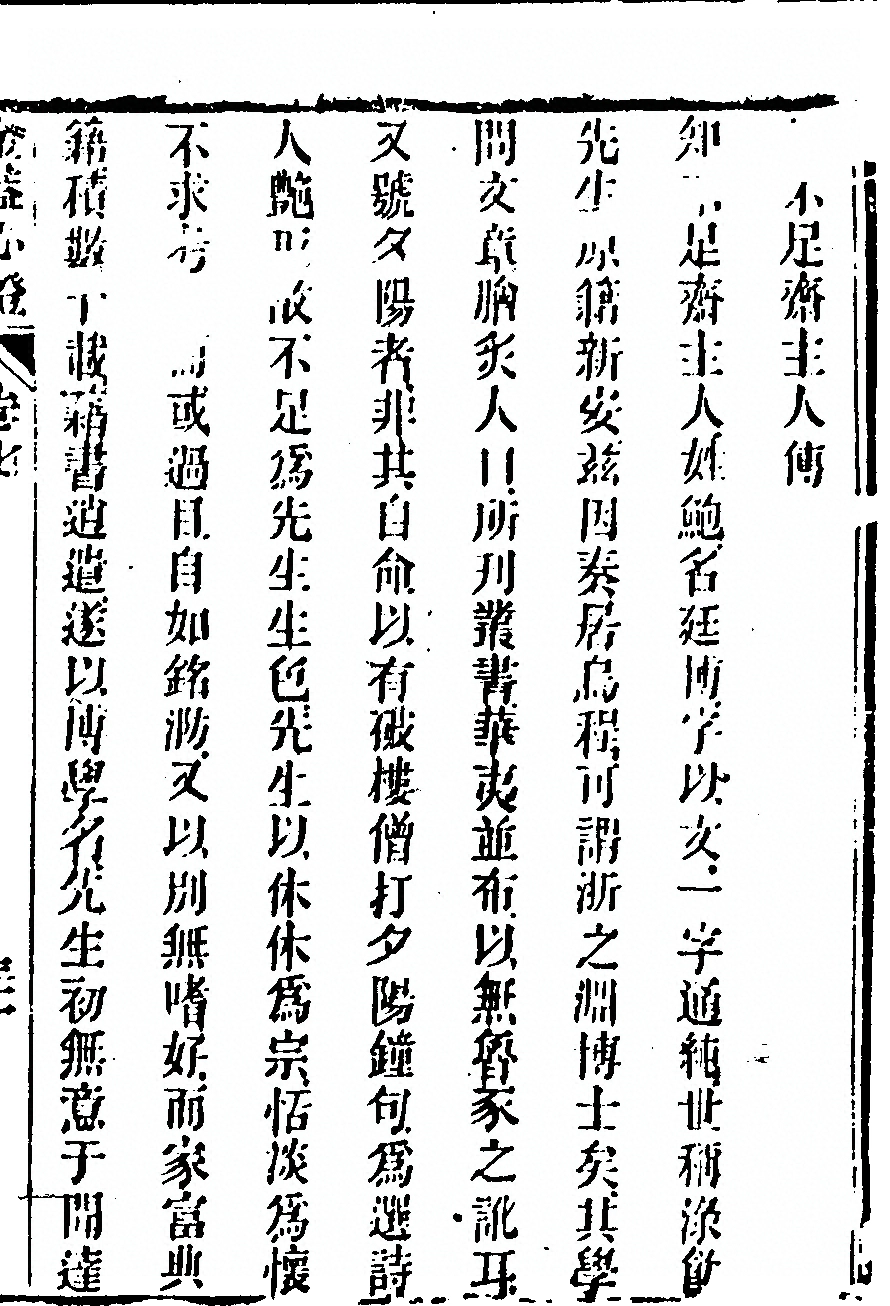 不足齋主人傳
知不足齋主人姓鮑名廷博字以文一字通純世稱淥飲
先生原籍新安茲因奏居烏程可謂浙之淵博士矣其學
問文章膾炙人口所刊叢書華夷並布以無魯豕之訛耳
又號夕陽者非其自命以有破樓僧打夕陽鐘句爲選詩
人艷 故不足爲先生生色先生以休休爲宗恬淡爲懷
不求 而或過目自如銘 又以別無嗜好而家富典
籍積數千載藉書逍遣遂以博學名先生初無意于聞達